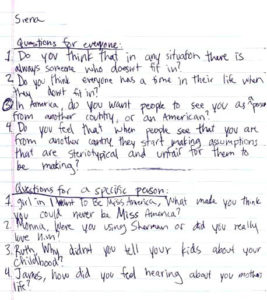 Siena
Questions for everyone:
1. Do you think that in any situation there is
always someone who doesn't fit in?
2. Do you think everyone has a time in their life when
they dont fit in?
3. In America, do you want people to see you as a person
from another country, or an American?
4. Do you feel that when people see that you are
from another country they start making assumptions
that are steriotypical and unfair for them to
be making?
Questions for a specific person:
1. girl in I Want to Be Miss America, What made you think
you could never be Miss America?
2. Monna, Were you using Sherman or did you really
love him?
3. Ruth, Why didnt you tell your kids about your
Childhood?
4. James, how did you feel hearing about you mothers
life?